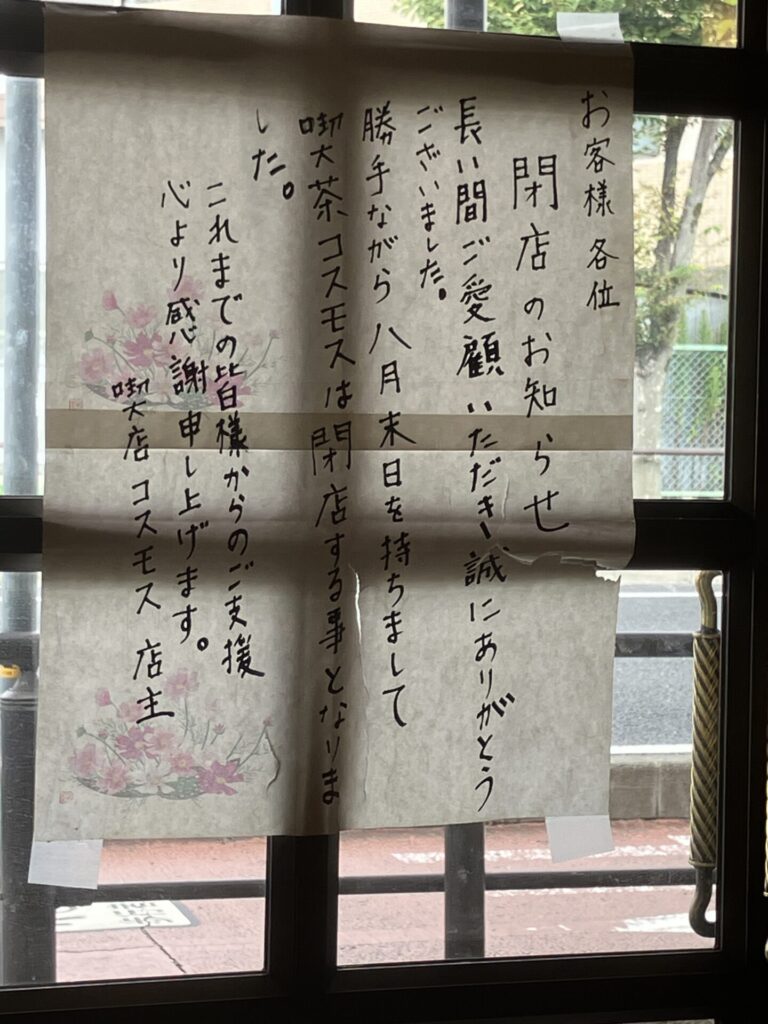 お客様 各位
閉店のお知らせ
長い間ご愛顧いただき誠にありがとう
ございました。
勝手ながら八月末日を持ちまして
喫茶コスモスは閉店する事となりま
した。
これまでの皆様からのご支援
心より感謝申し上げます。
喫店コスモス 店主